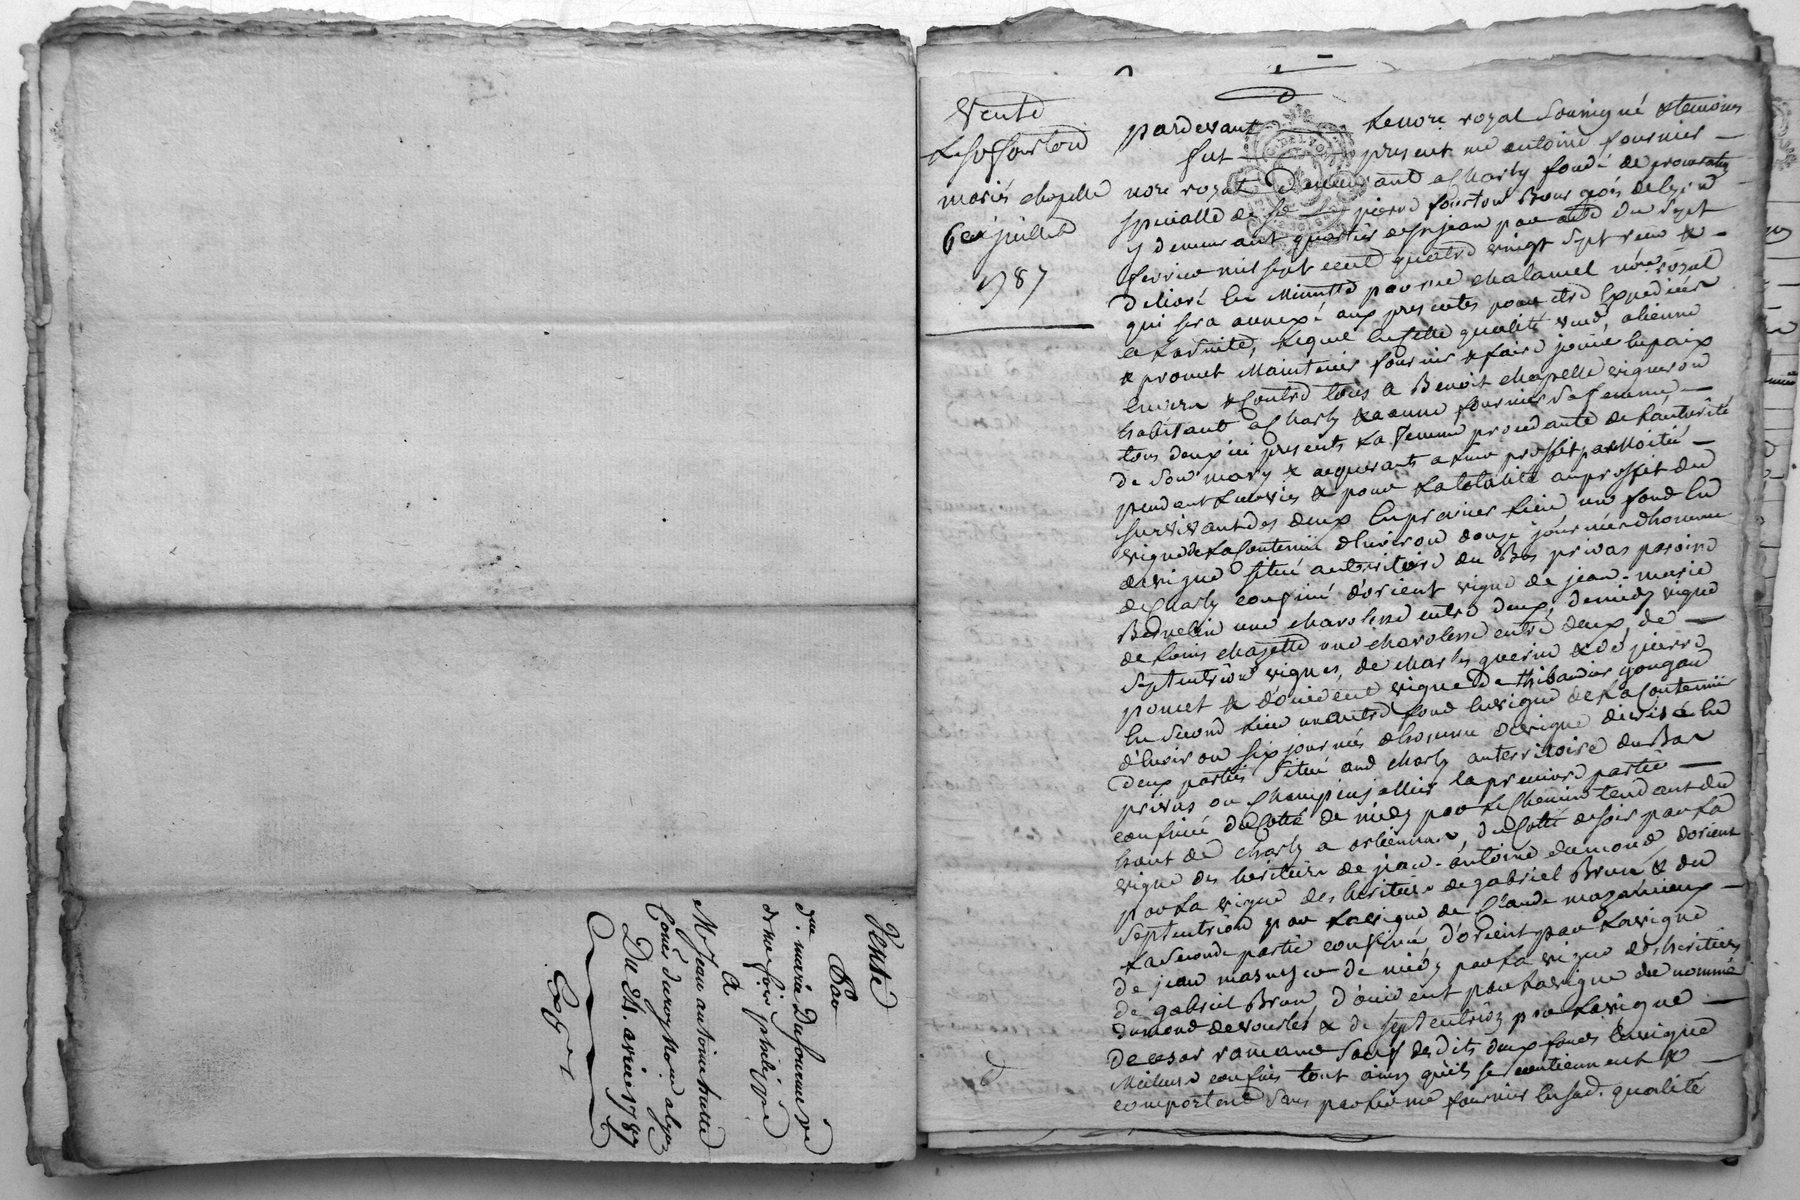 Vente
Par
d.lle marie Dufournel ve
de me fois philippe
a
Mr Jean antoine hutte
Coner du roy Nore a lyon
Du 24. avril 1787
Vente
Le Sr fourton
mariés chapelle
6e juillet
1787
pardevant Le nore royal Soussigné & temoins
fut present me antoine fournier
nore royal demeurant a Charly fondé de procuration
specialle de Sr pierre fourton Bourgeois de Lyon
y demeurant quartier de St jean par acte du sept
fevrier mil sept cent quatre vingt sept reçu &
delivré En Minutte par me chalamel nore royal
qui sera annexé aux presentes pour etre Expediées
a La Suitte, Lequel En cette qualité vend aliene
& promet Maintenir fournir & faire jouir En paix
Envers & Contre tous a Benoit chapelle vigneron
habitant a Charly & a anne fournier Sa femme
tous deux ici presents La femme procedante de L'autorité
de Son mary & acquerants a Leur proffit par Moitié
pendant Leur vies & pour La totalité au proffit du
Survivant des deux En premier Lieu un fond En
vigne de La Contenue d'Environ douze journées d'homme
de vigne Situé au territoire du Bas privas paroisse
de Charly confiné d'orient vigne de jean-marie
une charoliere entre deux, de midy vigne
de Louis chazette une charoliere entre deux, de
Septentrion vignes de charles guerin & de pierre
poncet & d'occident vigne de thibaudier
En Second Lieu un autre fond En vigne de La Contenue
d'Environ Six journées d'homme de vigne divisé En
deux parties Situé aud Charly au territoire du Bas
privas ou la premiere partie
confinée du Cotté de midy par Le Chemin tendant du
haut de Charly a du Cotté de soir par La
vigne des heritiers de jean-antoine dumond, d'orient
par La vigne des heritiers de gabriel Brun & du
Septentrion par La vigne de Claude
La Seconde partie confinée, d'orient par La vigne
de jean de midy par La vigne des heritiers
de gabriel Brun, d'occident par La vigne du nommé
dumond de vourles & de Septentrion par La vigne
de cesar romand Sauf des dits deux fonds En vigne
Meilleurs confins tout ainsy qu'ils se contiennent &
comportent Sans par Led me fournier En Sad. qualité